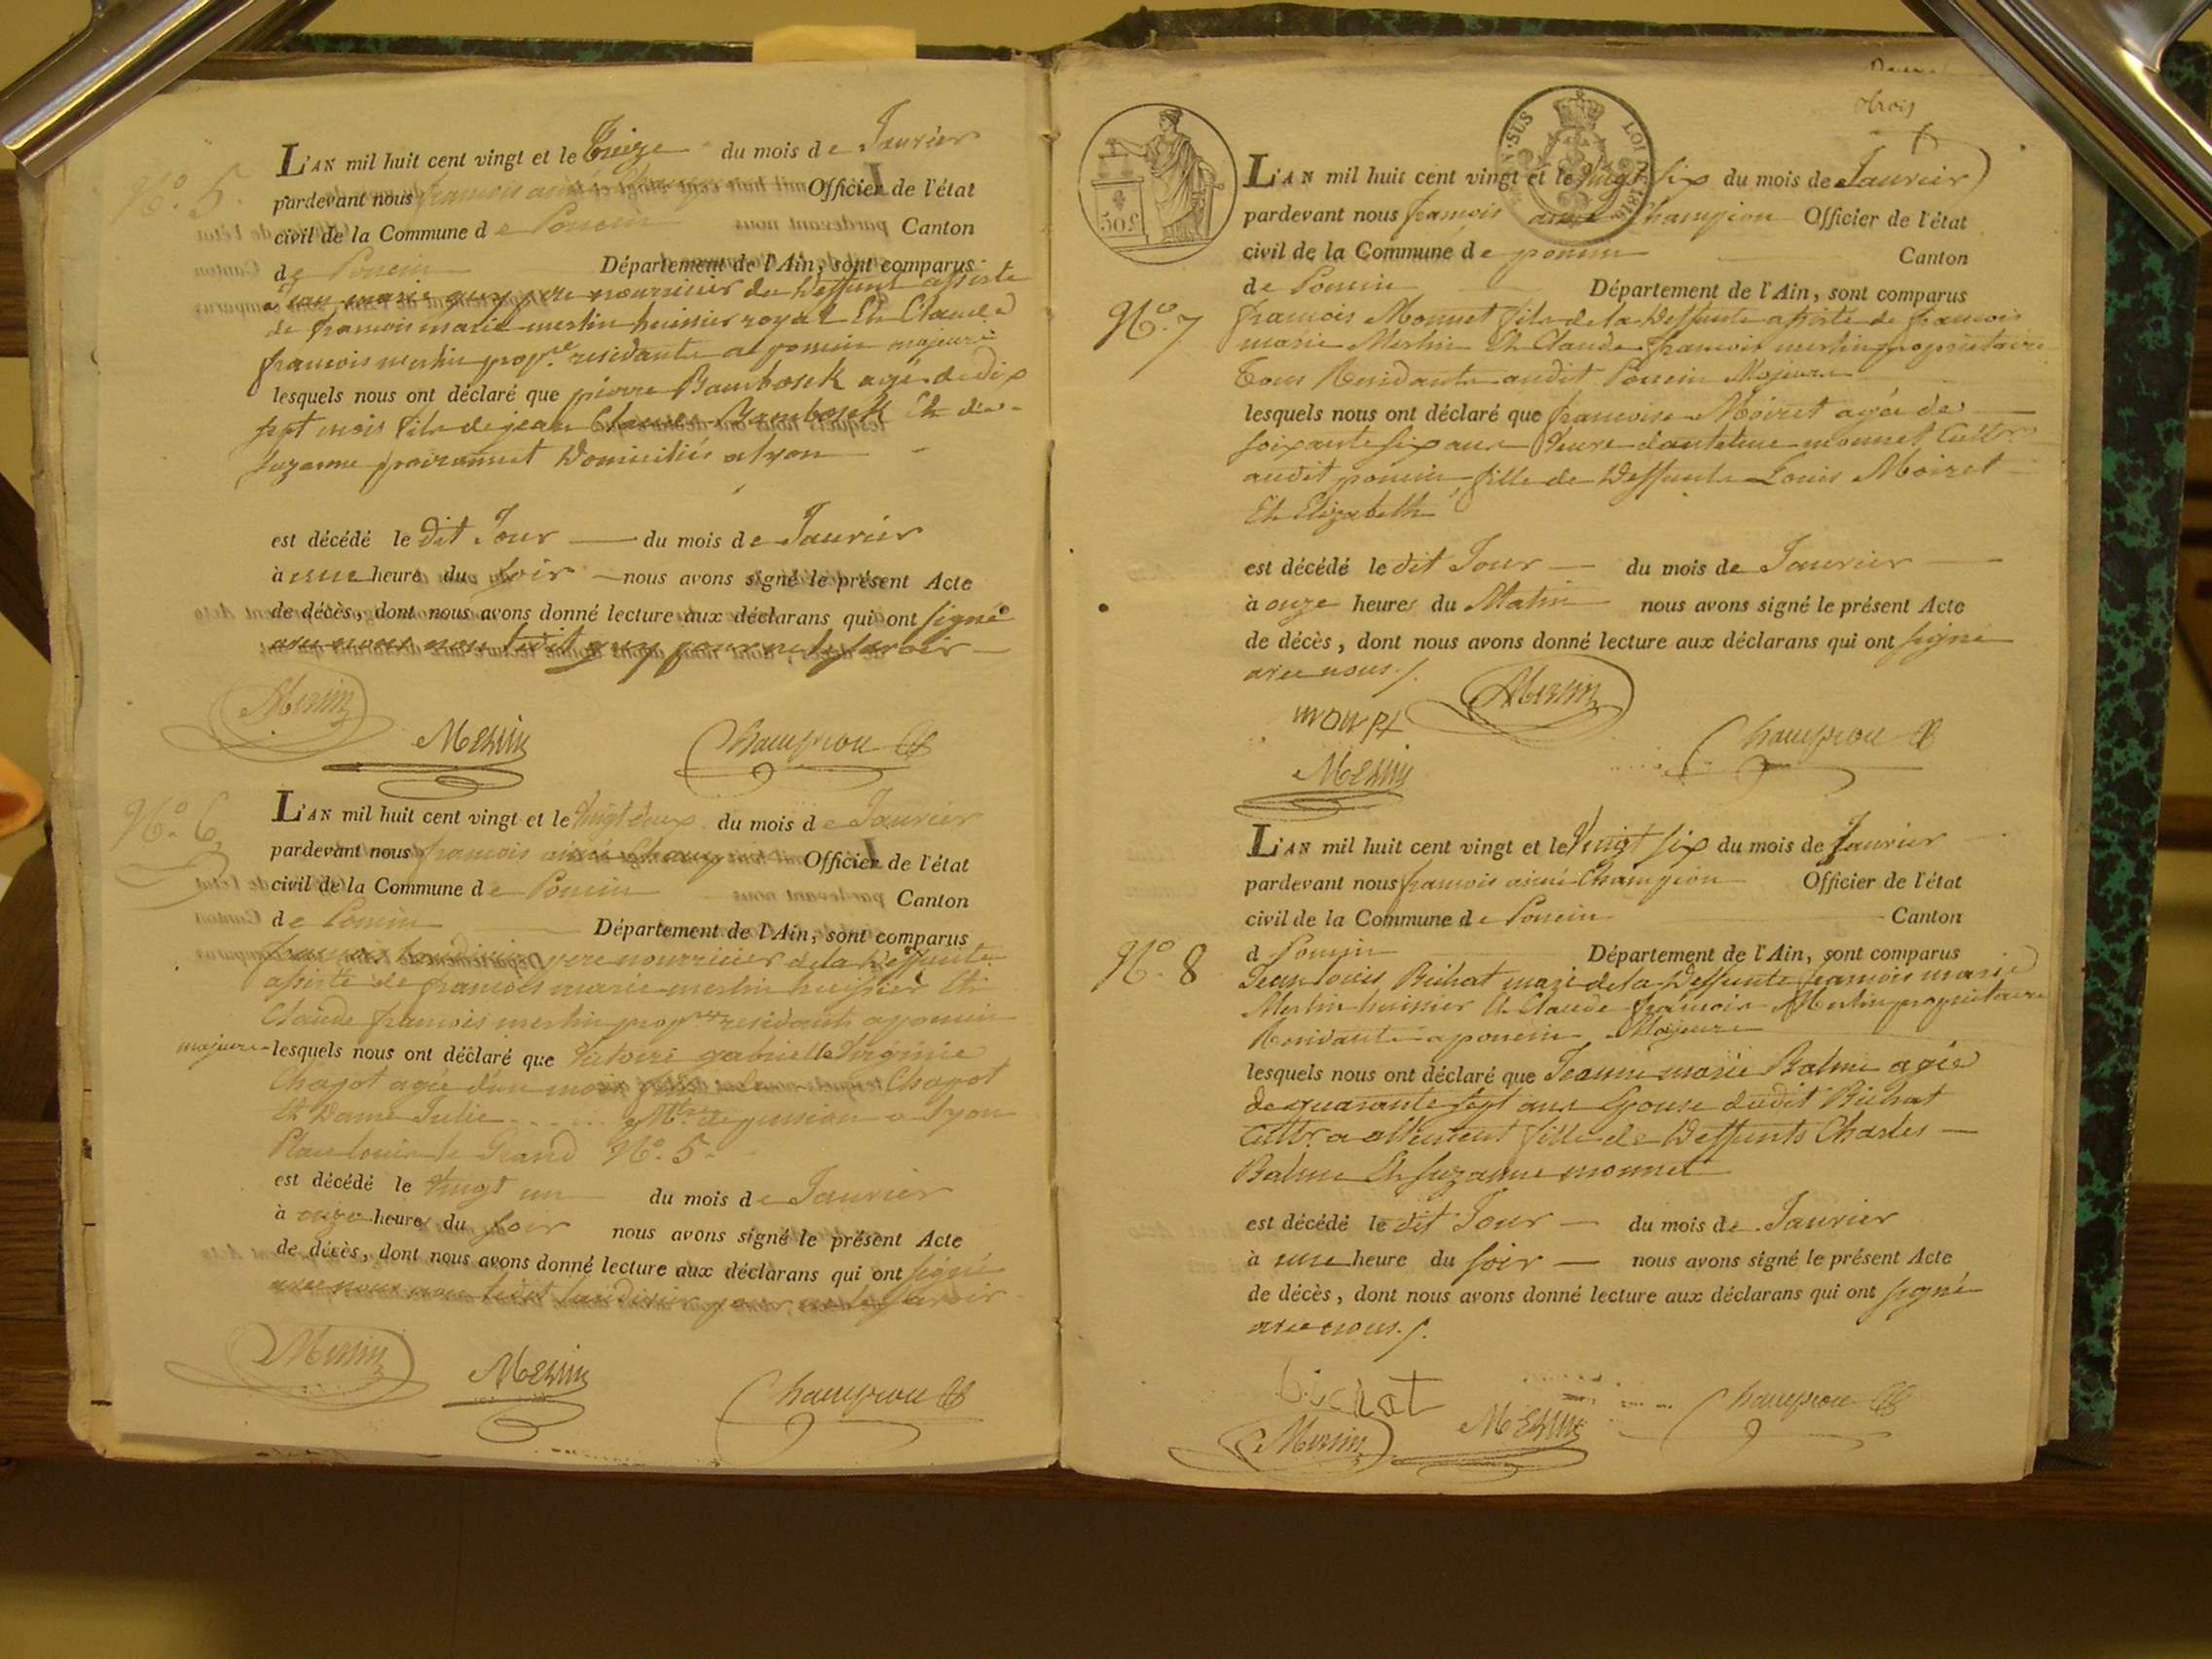 N.º 5.
L'AN mil huit cent vingt et le treize du mois de Janvier
pardevant nous francois aimé Champion Officier de l'état
civil de la Commune de Poncin Canton
de Poncin Département de l'Ain, sont comparus
Jean marie guy pere nourricier du deffunt assisté
de francois marie merlin huissier royal Et Claude
francois merlin prop.re residants a poncin majeurs
lesquels nous ont déclaré que pierre Bambosek agé de dix
sept mois fils de jean Claude Bambosek Et de
Suzanne Domiciliés a lyon
est décédé le dit Jour du mois de Janvier
à une heure du soir nous avons signé le présent Acte
de décès, dont nous avons donné lecture aux déclarans qui ont signé
avec nous non ledit guy pour ne le savoir
Merlin
Merlin
Champion
N.º 6
L'AN mil huit cent vingt et le vingt deux du mois de Janvier
pardevant nous francois aimé Champion Officier de l'état
civil de la Commune de Poncin Canton
de Poncin Département de l'Ain, sont comparus
francois pere nourricier de la deffunte
assisté de francois marie merlin huissier Et
Claude francois merlin prop.re residants a poncin
majeurs lesquels nous ont déclaré que victoire gabrielle Virginie
Chapot agée d'un mois Chapot
Et Dame Julie M.tre de pension a Lyon
Place louis le Grand N.º 5.
est décédé le vingt un du mois de Janvier
à onze heures du soir nous avons signé le présent Acte
de décès, dont nous avons donné lecture aux déclarans qui ont signé
avec nous non ledit pour ne le savoir
Merlin
Merlin
Champion
trois
50c
L'AN mil huit cent vingt et le vingt six du mois de Janvier
pardevant nous francois aimé Champion Officier de l'état
civil de la Commune de poncin Canton
de Poncin Département de l'Ain, sont comparus
N.º 7
francois Monnet fils de la deffunte assisté de francois
marie Merlin Et Claude francois merlin propriétaire
tous Residants audit Poncin Majeurs
lesquels nous ont déclaré que francoise Moiret agée de
soixante six ans veuve d'antoine monnet Cult.r
audit poncin fille de deffunts Louis Moiret
Et Elizabeth
est décédé le dit Jour du mois de Janvier
à onze heures du Matin nous avons signé le présent Acte
de décès, dont nous avons donné lecture aux déclarans qui ont signé
avec nous./.
Merlin
Champion
Merlin
L'AN mil huit cent vingt et le Vingt six du mois de Janvier
pardevant nous francois aimé Champion Officier de l'état
civil de la Commune de Poncin Canton
N.º 8
d Poncin Département de l'Ain, sont comparus
Jean louis Bichat mari de la deffunte francois marie
Merlin huissier Et Claude francois Merlin propriétaire
Residants a poncin Majeurs
lesquels nous ont déclaré que Jeanne marie Balme agée
de quarante sept ans Epouse dudit Bichat
Cult.r a fille de deffunts Charles
Balme Et Suzanne monnet
est décédé le dit Jour du mois de Janvier
à une heure du soir nous avons signé le présent Acte
de décès, dont nous avons donné lecture aux déclarans qui ont signé
avec nous./.
bichat
Merlin
Merlin
Champion